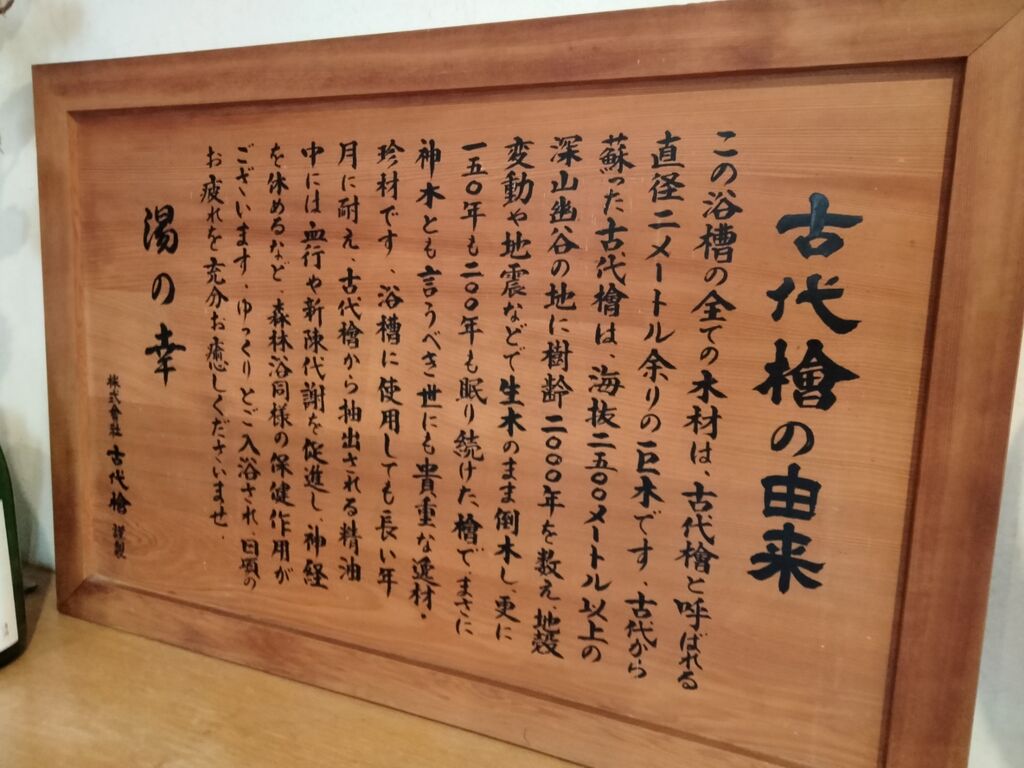 古代檜の由来
この浴槽の全ての木材は、古代檜と呼ばれる
直径二メートル余りの巨木です、古代から
蘇った古代檜は、海抜二五〇〇メートル以上の
深山幽谷の地に樹齢二〇〇〇年を数え、地殻
変動や地震などで生木のまま倒木し、更に
一五〇年も二〇〇年も眠り続けた、檜でまさに
神木とも言うべき世にも貴重な逸材・
珍材です、浴槽に使用しても長い年
月に耐え、古代檜から抽出される精油
中には血行や新陳代謝を促進し、神経
を休めるなど、森林浴同様の保健作用が
ございます、ゆっくりとご入浴され、日頃の
お疲れを充分お癒しくださいませ、
湯の幸
株式會社 古代檜 謹製